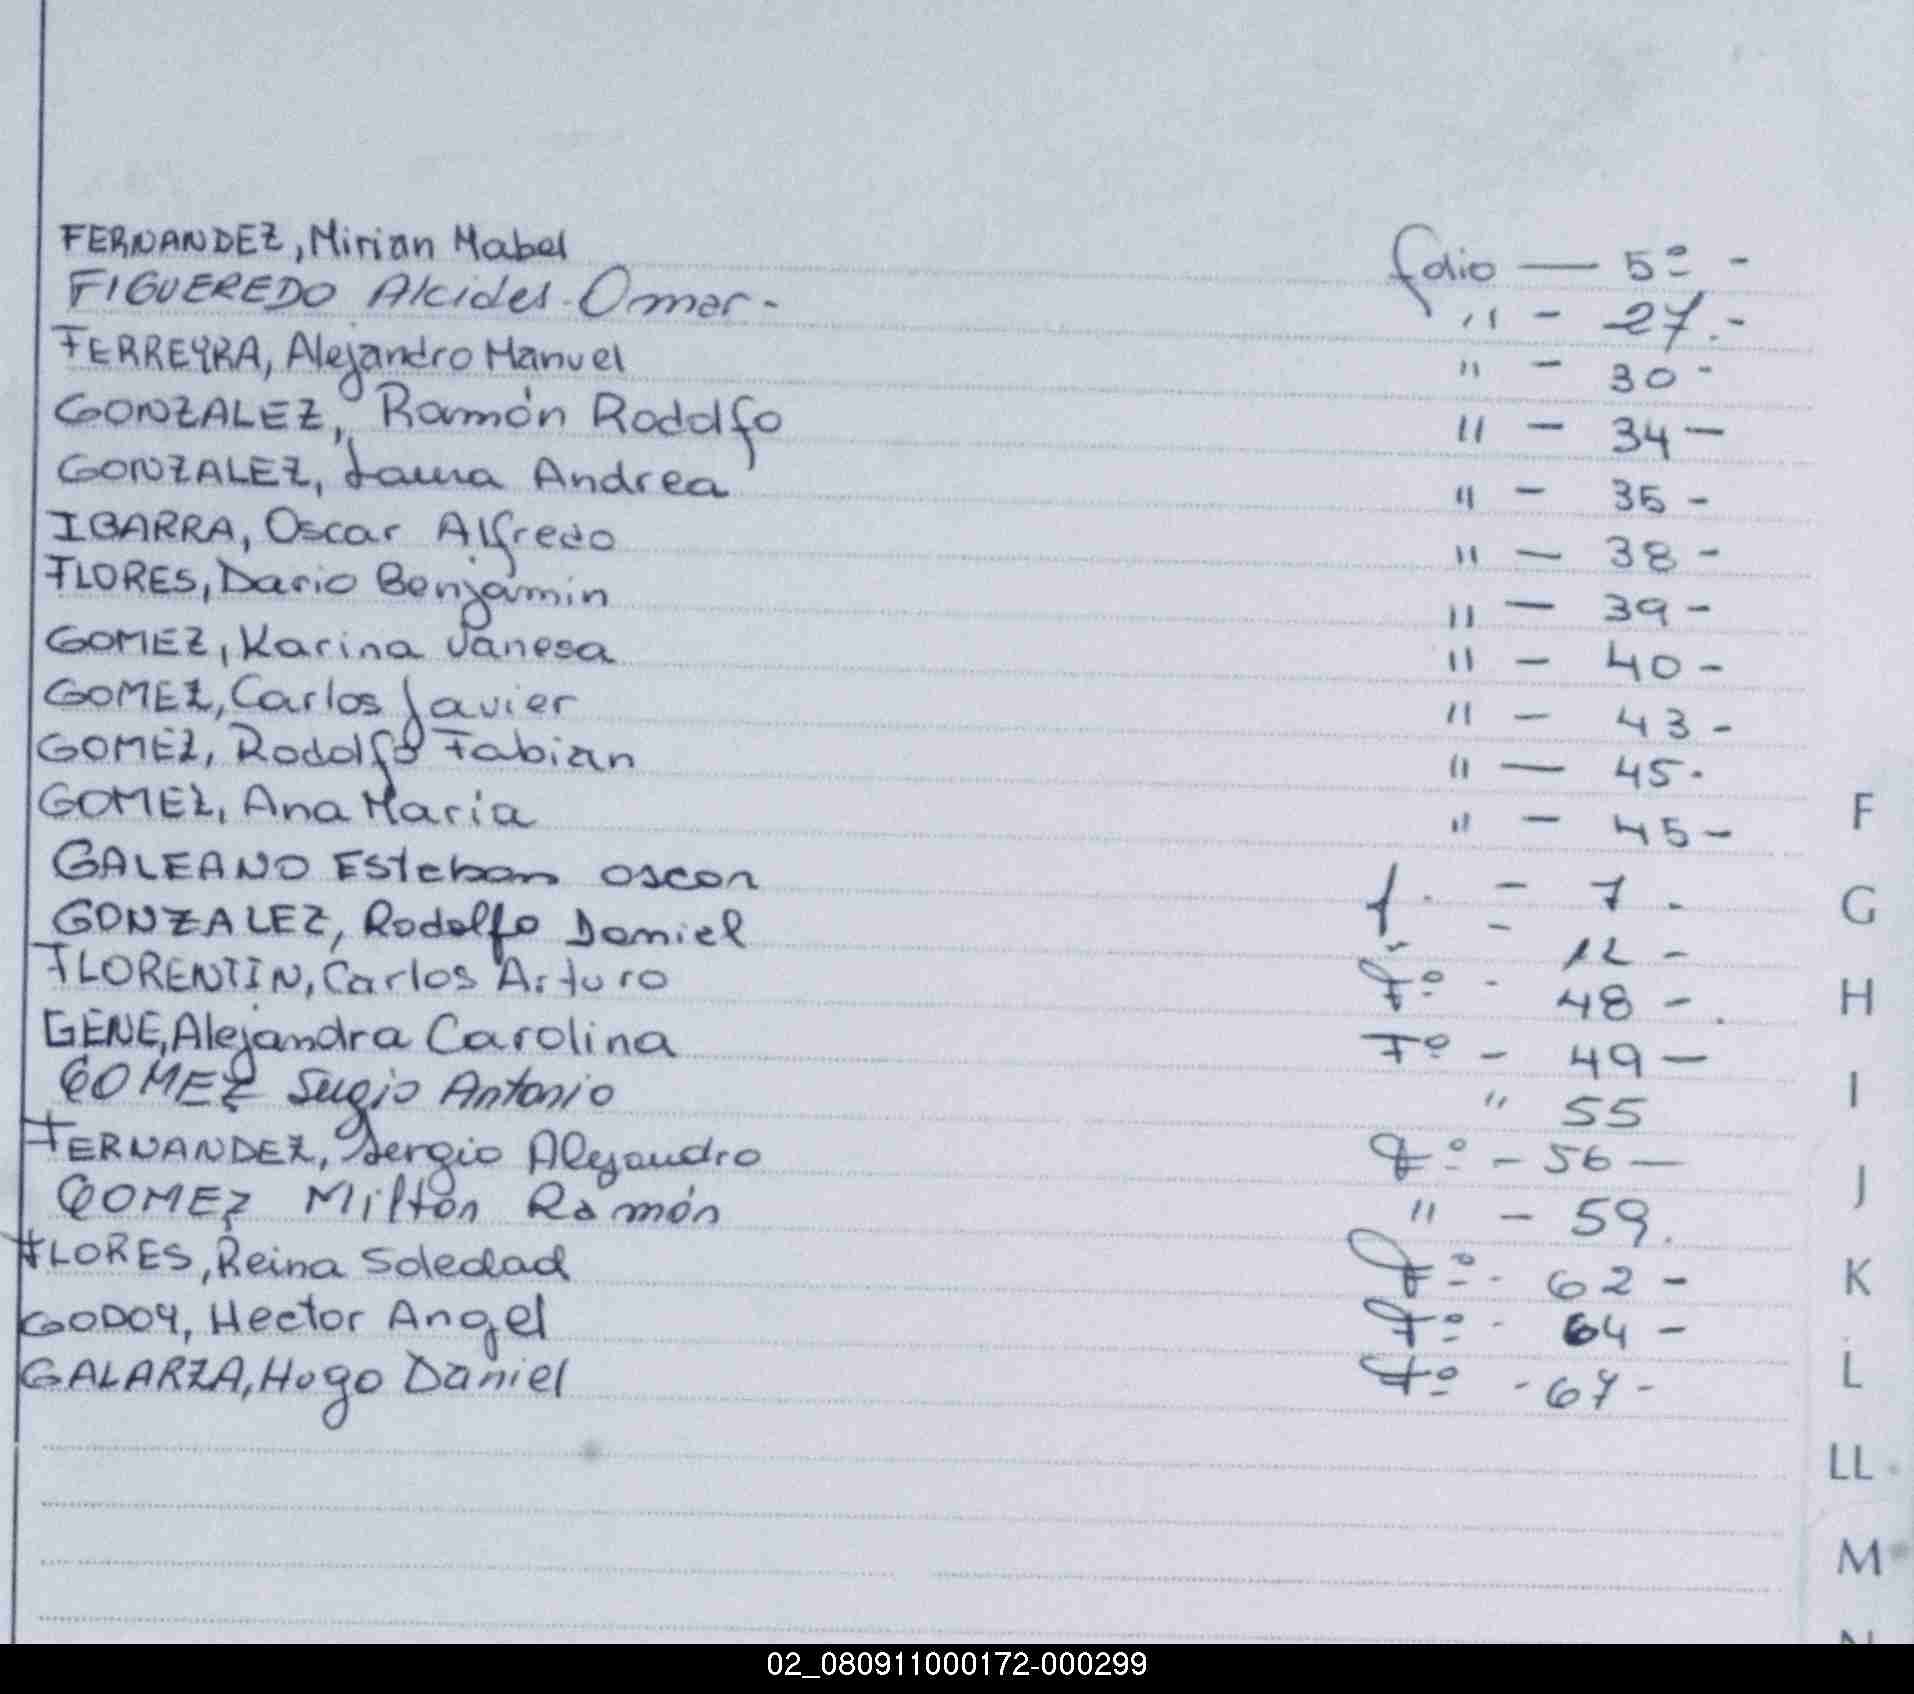 FERNANDEZ, Mirian Mabel folio — 5º -
FIGUEREDO Alcides Omar - " - 27.-
FERREYRA, Alejandro Manuel " - 30 -
GONZALEZ, Ramón Rodolfo " - 34 -
GONZALEZ, Laura Andrea " - 35 -
IBARRA, Oscar Alfredo " - 38 -
FLORES, Dario Benjamin " - 39 -
GOMEZ, Karina Vanesa " - 40 -
GOMEZ, Carlos Javier " - 43 -
GOMEZ, Rodolfo Fabian " — 45.
GOMEZ, Ana Maria " - 45 -
F
GALEANO Esteban oscar f. - 7 -
G
GONZALEZ, Rodolfo Daniel " - 12 -
FLORENTIN, Carlos Arturo Fº - 48 -.
H
GENE, Alejandra Carolina Fº - 49 —
GOMEZ Sergio Antonio " 55
I
FERNANDEZ, Sergio Alejandro Fº - 56 —
J
GOMEZ Milton Ramón " - 59.
FLORES, Reina Soledad Fº - 62 -
K
GODOY, Hector Angel Fº - 64 -
GALARZA, Hugo Daniel Fº - 67 -
L
LL
M
N
02_080911000172-000299